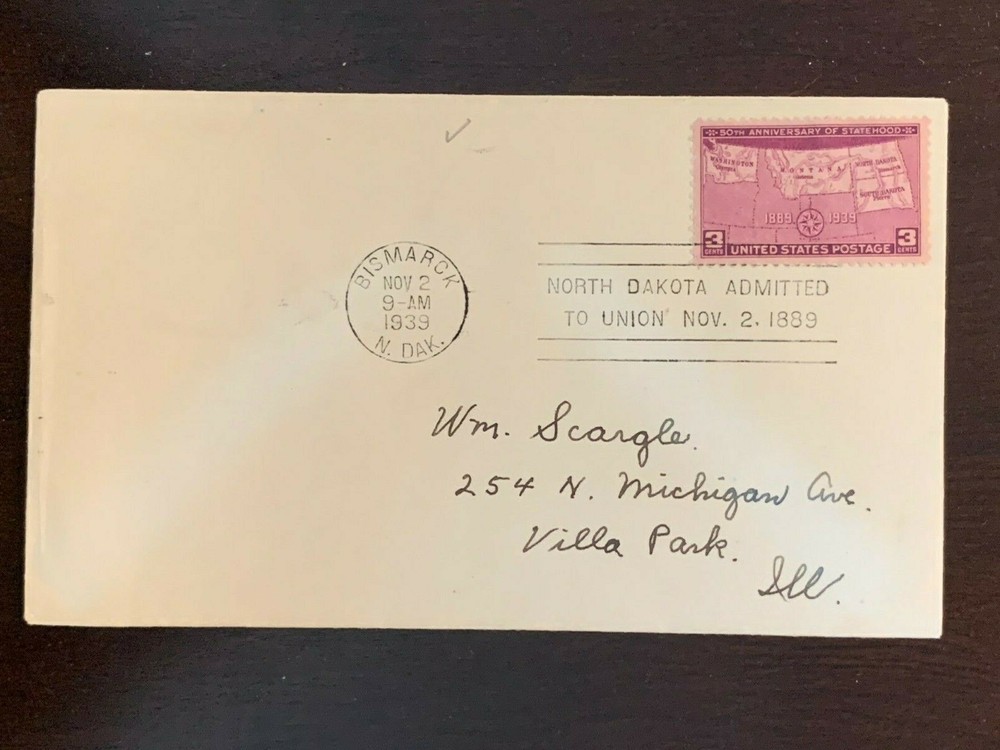 50TH ANNIVERSARY OF STATEHOOD
WASHINGTON
MONTANA
NORTH DAKOTA
SOUTH DAKOTA
1889 1939
3 CENTS UNITED STATES POSTAGE 3 CENTS
BISMARCK
NOV 2
9-AM
1939
N. DAK.
NORTH DAKOTA ADMITTED
TO UNION NOV. 2, 1889
Wm. Scargle.
254 N. Michigan Ave.
Villa Park.
Ill.